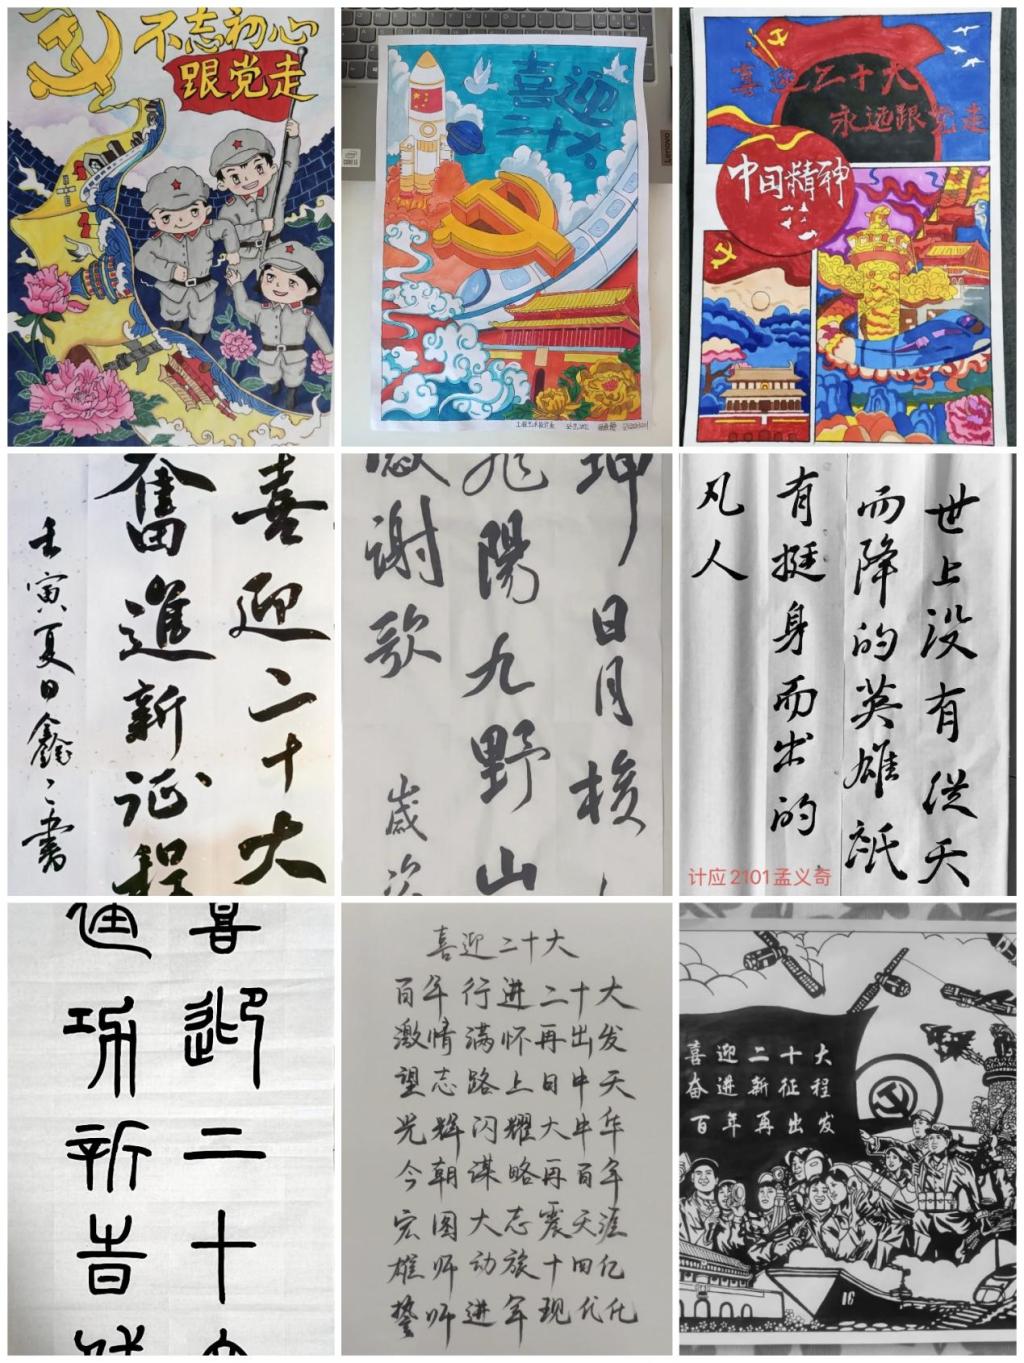 不忘初心
跟党走
喜迎
二十大
喜迎二十大
永远跟党走
中国精神
喜迎二十大
奮進新征程
壬寅夏日鑫二書
坤
日月梭
陽九野山
感谢歌
歲次
世上没有從天
而降的英雄祇
有挺身而出的
凡人
计应2101孟义奇
喜迎二十大
建功新时
喜迎二十大
百年行进二十大
激情满怀再出发
望志路上日中天
光辉闪耀大中华
今朝谋略再百年
宏图大志震天涯
雄师动族十四亿
擎师进军现代化
喜迎二十大
奋进新征程
百年再出发
16